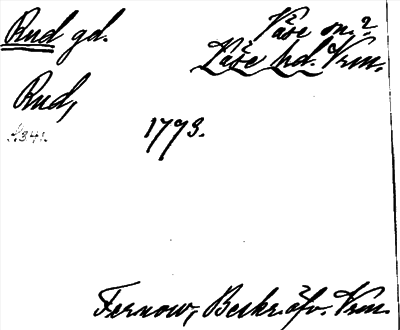 Rud gd. Väse sn.?
Väse hd. Vrm.
Rud,
s. 341.
1793.
Fernow, Beskr. öfv. Vrm.